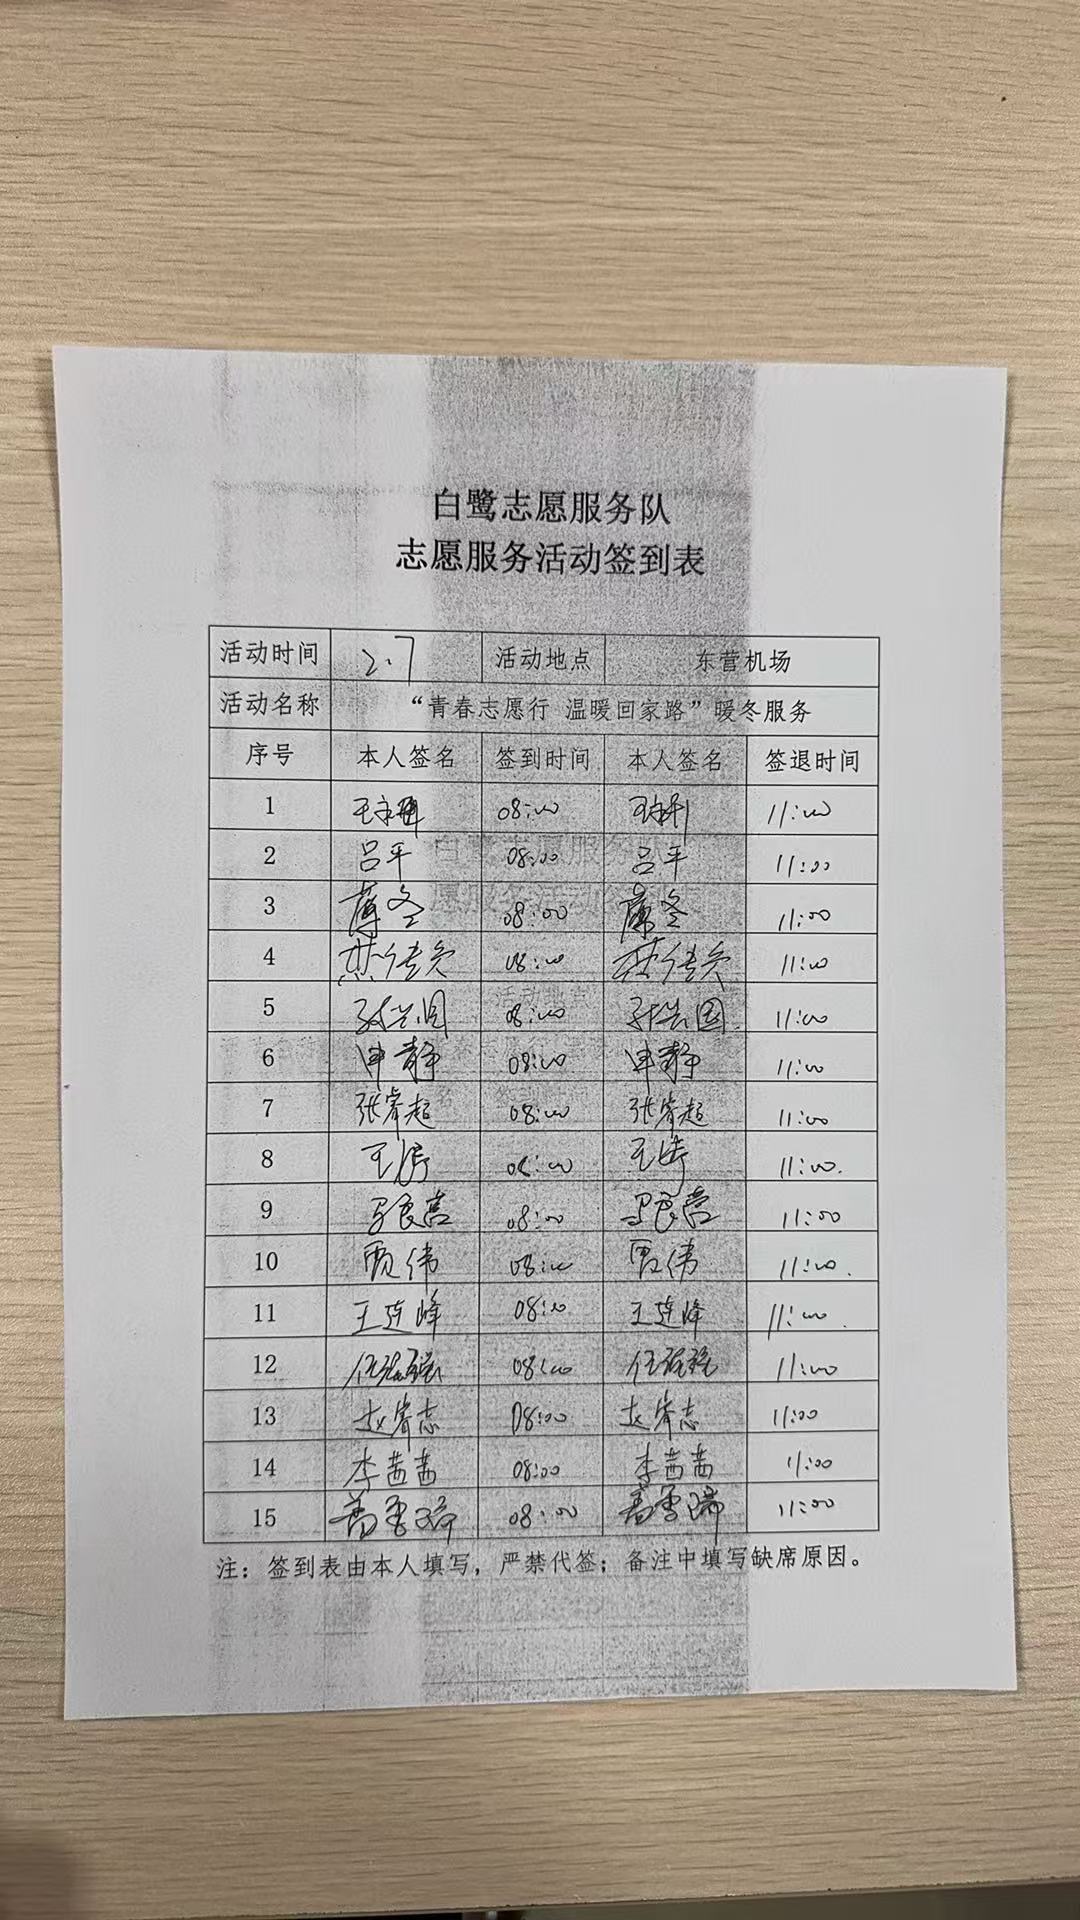 白鹭志愿服务队
志愿服务活动签到表
活动时间 2.7 活动地点 东营机场
活动名称 “青春志愿行 温暖回家路”暖冬服务
序号 本人签名 签到时间 本人签名 签退时间
1 08:00 11:00
2 吕平 08:00 吕平 11:00
3 薄冬 08:00 薄冬 11:00
4 08:00 11:00
5 08:00 11:00
6 申静 08:00 申静 11:00
7 张睿超 08:00 张睿超 11:00
8 王涛 08:00 王涛 11:00.
9 马良营 08:00 马良营 11:00
10 贾伟 08:00 贾伟 11:00.
11 王连峰 08:00 王连峰 11:00.
12 08:00 11:00
13 赵睿志 08:00 赵睿志 11:00
14 李茜茜 08:00 李茜茜 11:00
15 08:00 11:00
注：签到表由本人填写，严禁代签；备注中填写缺席原因。